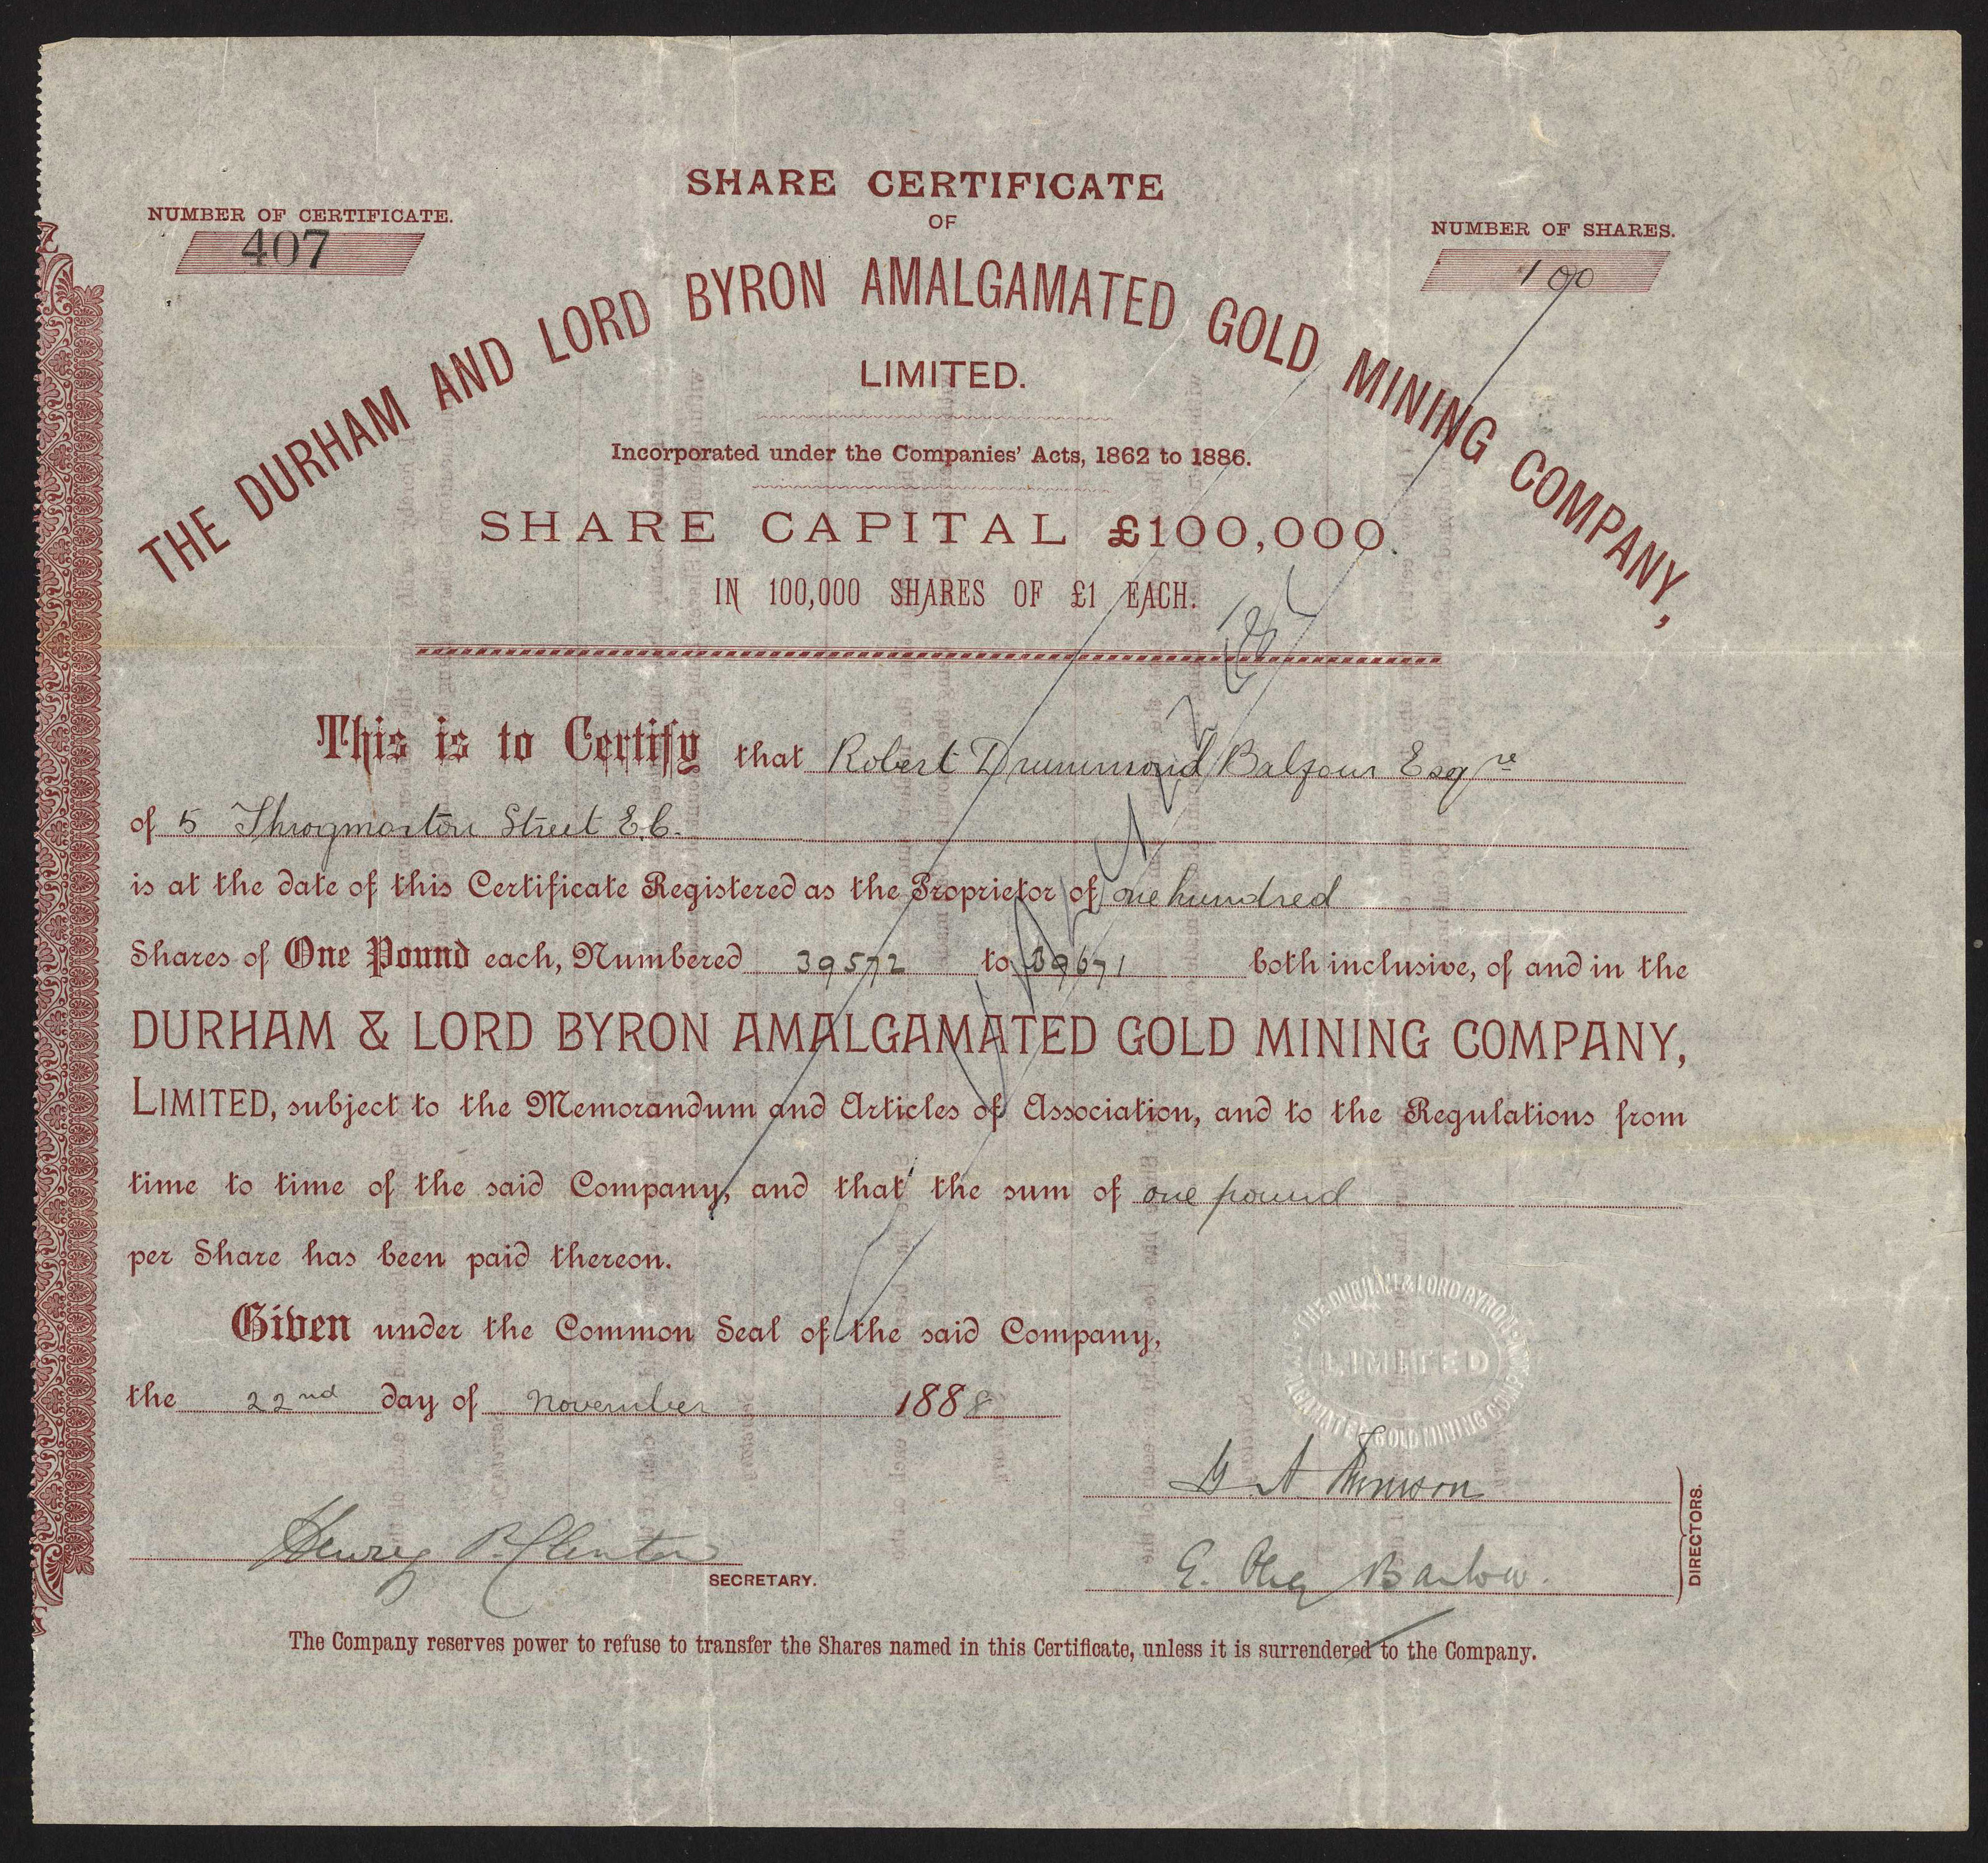 SHARE CERTIFICATE
OF
NUMBER OF CERTIFICATE.
407
NUMBER OF SHARES.
100
THE DURHAM AND LORD BYRON AMALGAMATED GOLD MINING COMPANY,
LIMITED.
Incorporated under the Companies' Acts, 1862 to 1886.
SHARE CAPITAL £100,000.
IN 100,000 SHARES OF £1 EACH.
This is to Certify that Robert Drummond Balfour Esqre
of 5 Throgmorton Street E.C.
is at the date of this Certificate Registered as the Proprietor of one hundred
Shares of One Pound each, Numbered 39572 to 39671 both inclusive, of and in the
DURHAM & LORD BYRON AMALGAMATED GOLD MINING COMPANY,
LIMITED, subject to the Memorandum and Articles of Association, and to the Regulations from
time to time of the said Company, and that the sum of one pound
per Share has been paid thereon.
Given under the Common Seal of the said Company,
the 22nd day of November 1888
THE DURHAM & LORD BYRON AMALGAMATED GOLD MINING COMPY
LIMITED
Henry P. Clinton
SECRETARY.
E. Barlow.
DIRECTORS.
The Company reserves power to refuse to transfer the Shares named in this Certificate, unless it is surrendered to the Company.